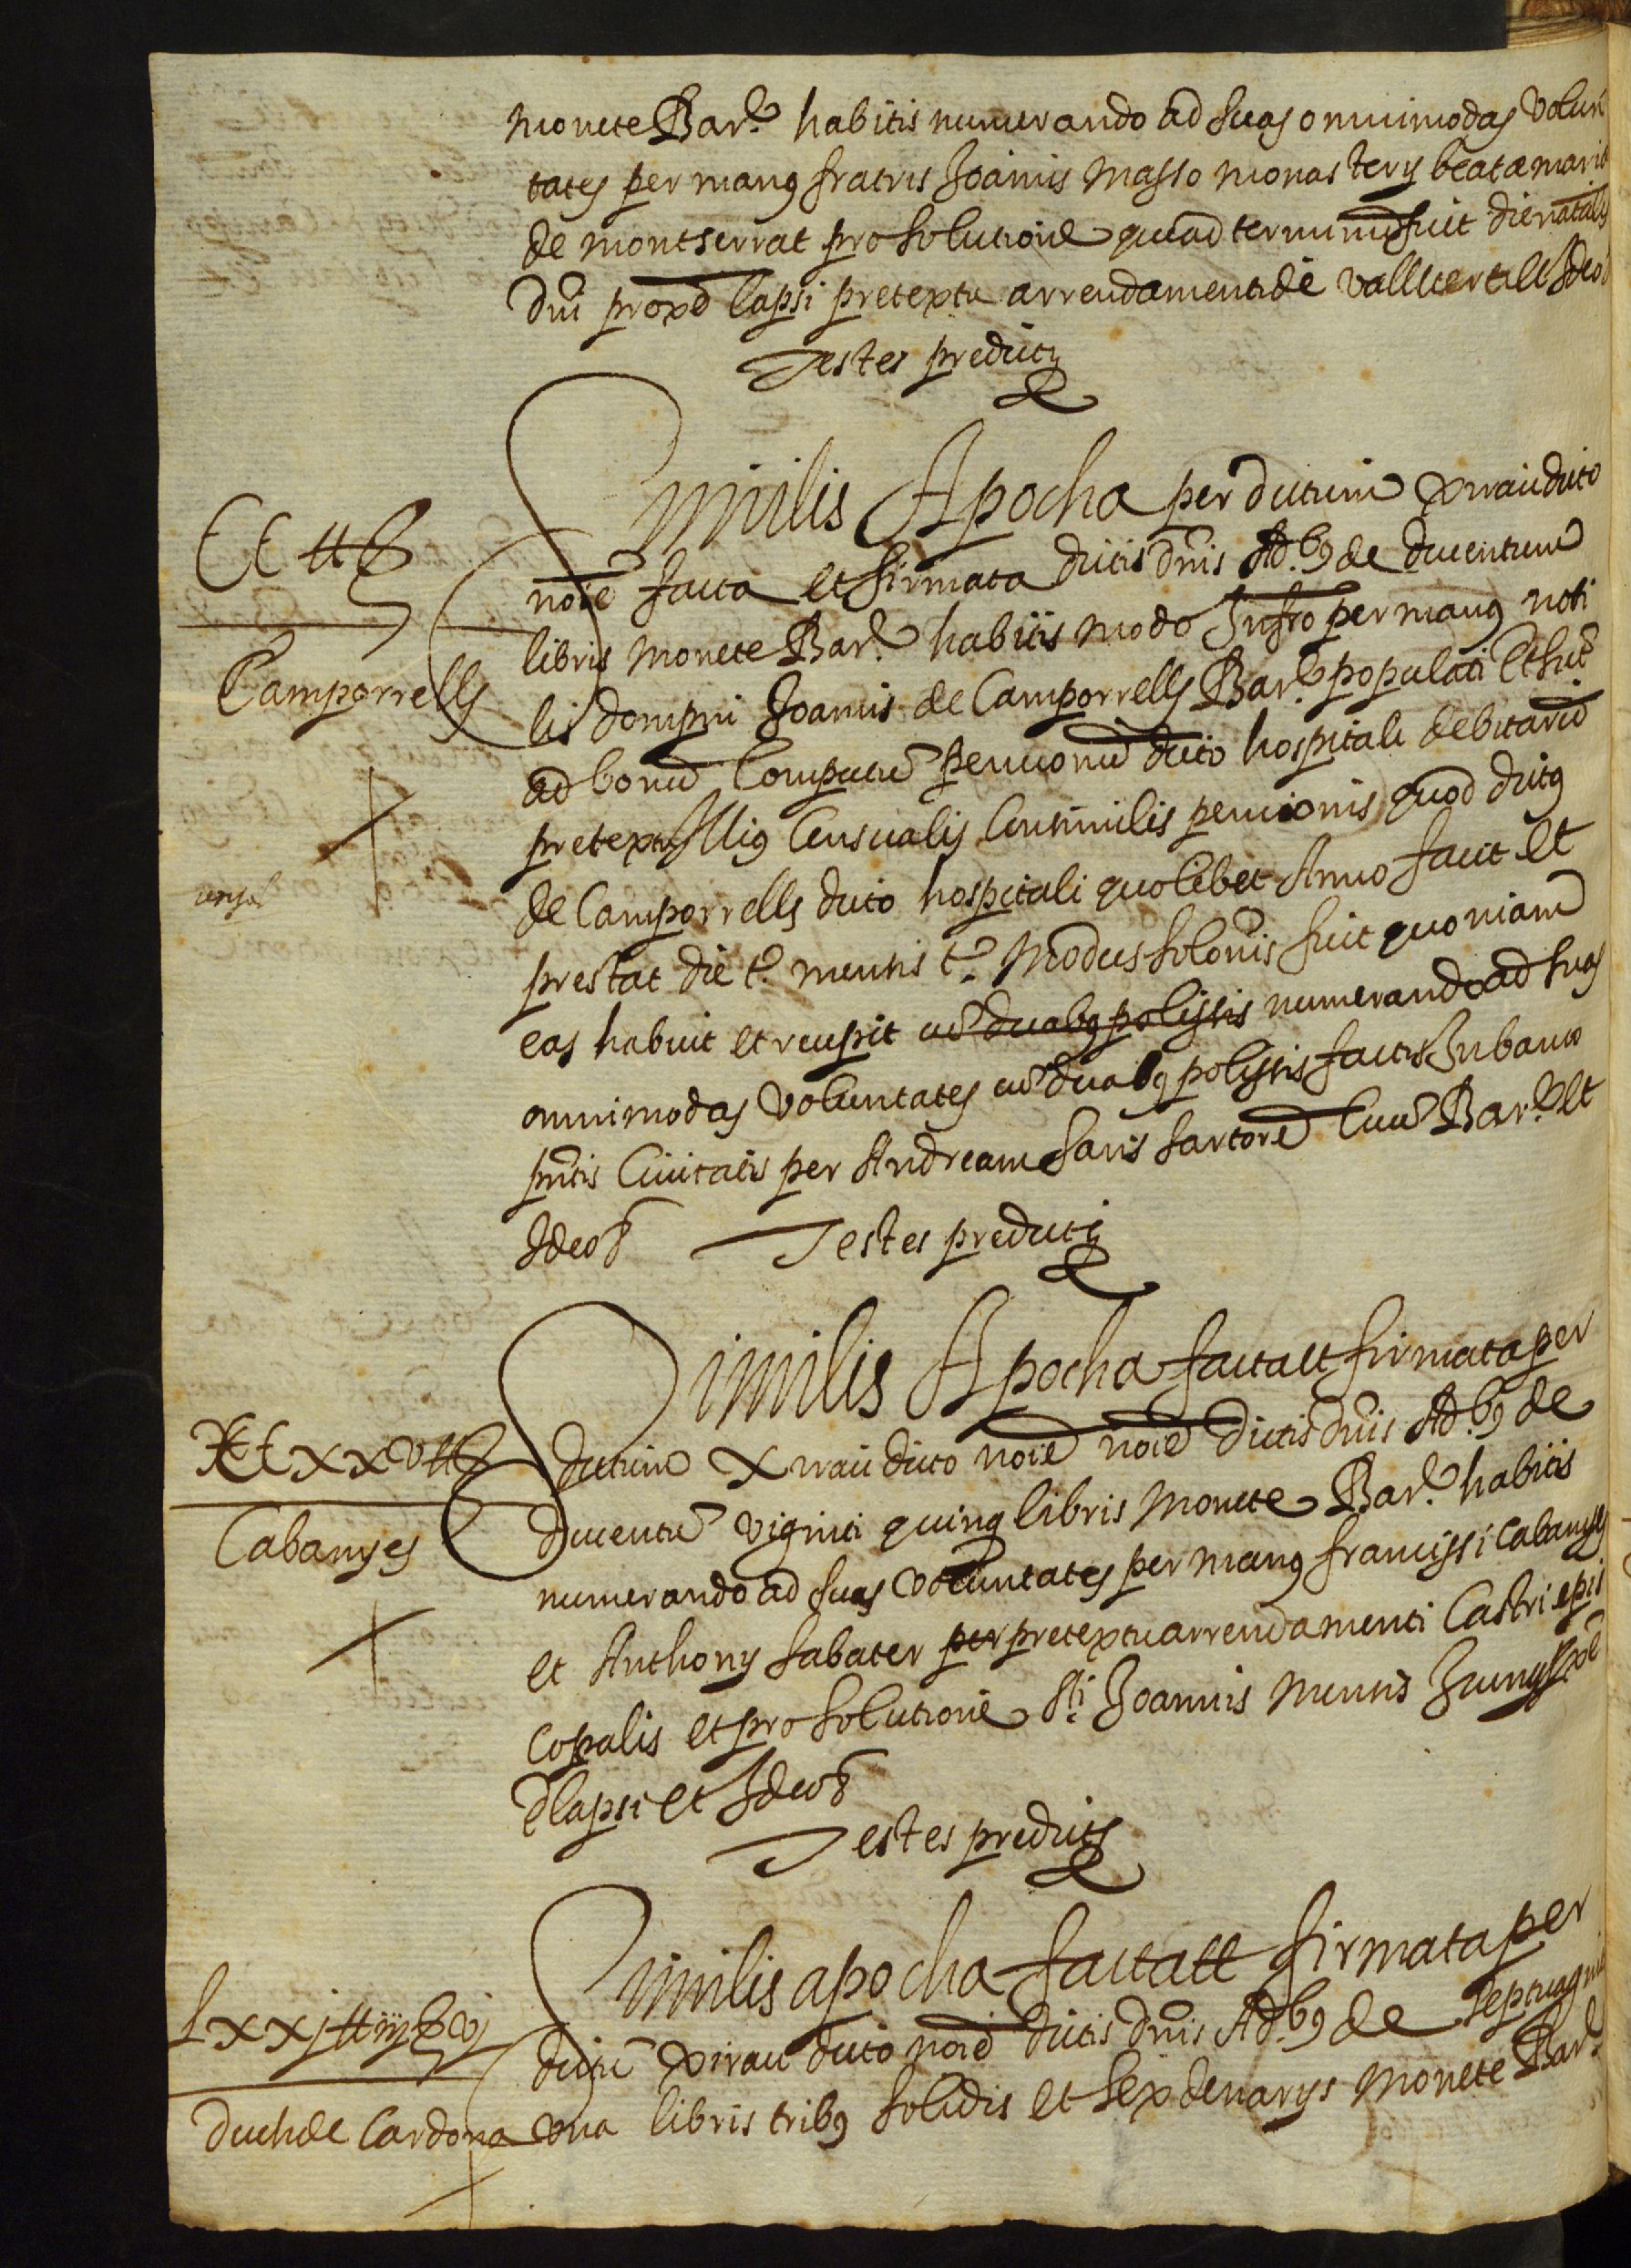 monete Bar.e habitis numerando ad suas omnimodas volun
tates per manus fratris Joannis Masso monasterij beatæ mariæ
de montserrat pro solutione que ad terminum fuit die natalis
dni proxe lapsi pretextu arrendamenti de vall et Ideo
Testes predicti
Similis Apocha per dictum Xirau dicto
noie facta et firmata dictis dnis Adb9 de ducentum
CC ll s
libris monete Bar.e habitis modo Infro per manus nobi
Camporrells
lis dompni Joannis de Camporrells Bar.e populati Et sut
ad bonum Computum pencionum dicto hospitali debitarum
pretextu Illius Censualis Consimilis pencionis quod dictus
de Camporrells dicto hospitali quolibet Anno facit et
prestat die t.e mensis t.e Modus solonis fuit quoniam
eas habuit et recepit cu duabus polissis numerando ad suas
omnimodas voluntates cu duabus polissis factis In banco
pntis Civitatis per Andream Saris sartore Civē Bar.e et
Ideo Testes predicti
Similis Apocha facta et firmata per
CCxxv ll s
dictum Xirau dicto noie noie dictis dnis Adb9 de
Cabanyes
ducentu viginti quinq libris monete Bar.e habitis
numerando ad suas voluntates per manus francissi Cabanyes
et Anthonij Sabater per pretextu arrendamenti Castri epis
copalis et pro solutione sti Joannis mensis Junij pxe
elapsi et Ideo
Testes predicti
Similis apocha facta et firmata per
Lxxj ll iij s vj
dictu Xirau dicto noie dictis dnis Adb9 de septuagin
Duch de Cardona
una libris tribus solidis et sex denarijs monete Bar.e